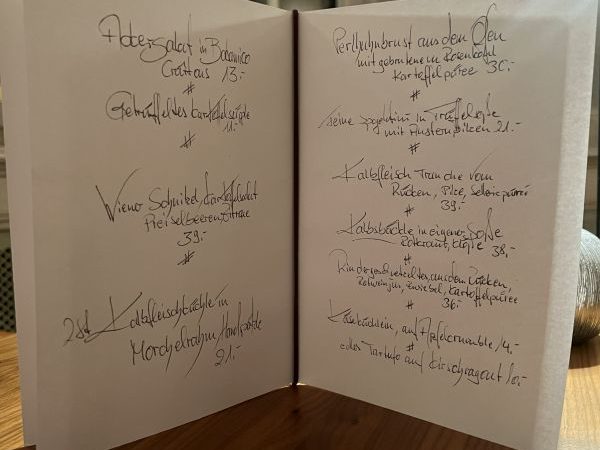 Ackersalat in Balsamico
Croûtons 13.-
#
Getrüffeltes Kartoffelsüpple
11.-
#
Wiener Schnitzel, Kartoffelsalat
Preiselbeeren, Zitrone
39.-
#
2 Stk Kalbsfleischküchle in
Morchelrahm,
21.-
Perlhuhnbrust aus dem Ofen
mit gebratenem Rosenkohl
Kartoffelpüree 36.-
#
feine Spaghettini in Trüffelsoße
mit Austernpilzen 21.-
#
Kalbfleisch Tranche vom
Rücken, Pilze, Selleriepüree
39.-
#
Kalbsbäckle in eigener Soße
Rotkraut, Klöße 38.-
#
Rindergeschnetzeltes, aus dem Rücken,
Rotweinjus, Zwiebel, Kartoffelpüree
36.-
#
Käseküchlein, auf Apfelcrumble 14.-
#
oder Tartufo auf Kirschragout 10.-